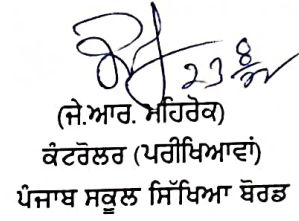 (ਜੇ.ਆਰ. ਮਹਿਰੋਕ)
ਕੰਟਰੋਲਰ (ਪਰੀਖਿਆਵਾਂ)
ਪੰਜਾਬ ਸਕੂਲ ਸਿੱਖਿਆ ਬੋਰਡ